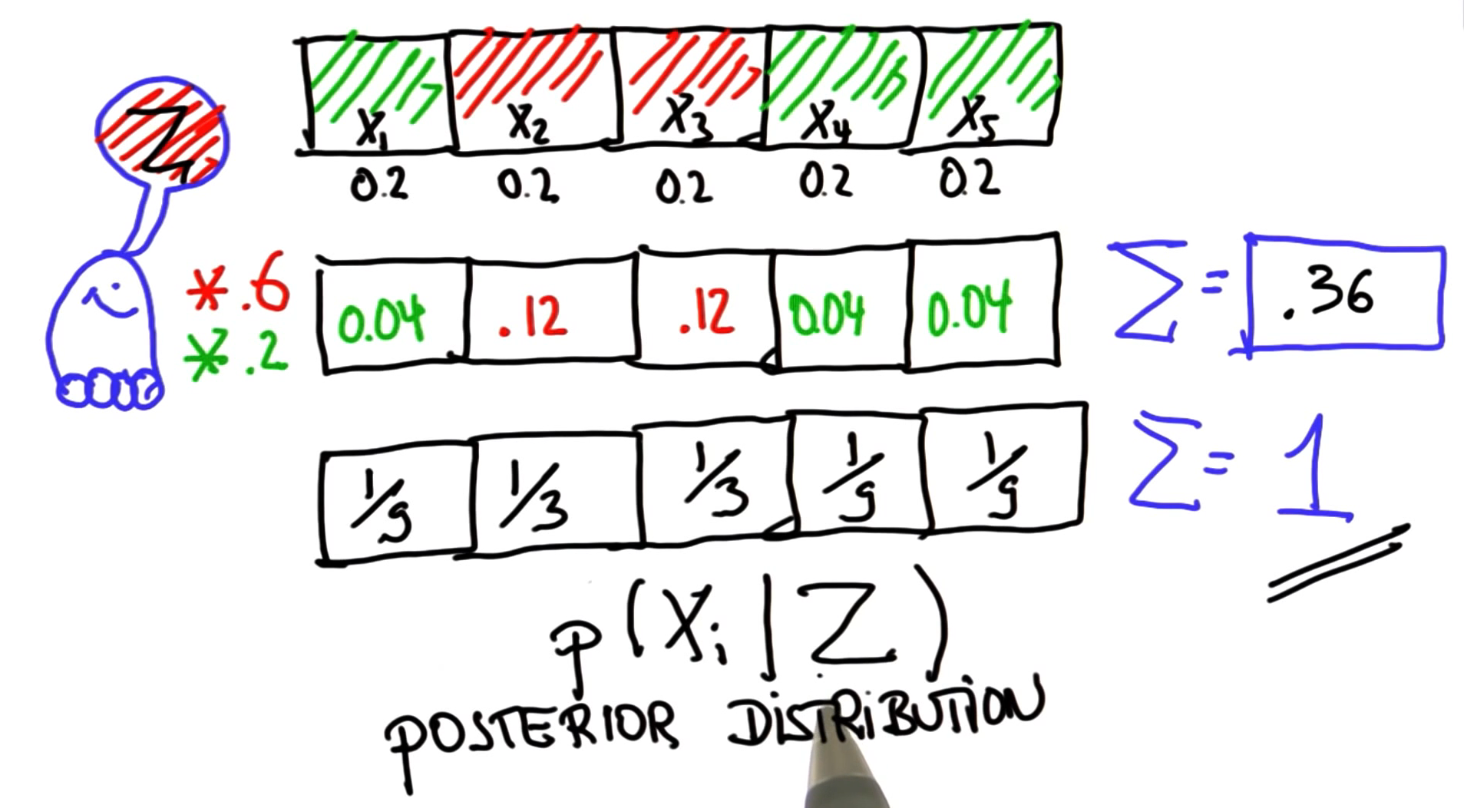 X1 X2 X3 X4 X5
Z
0.2 0.2 0.2 0.2 0.2
*.6
*.2
0.04 .12 .12 0.04 0.04
Σ = .36
1/9 1/3 1/3 1/9 1/9
Σ = 1
p(Xi|Z)
POSTERIOR DiSTRiBUTiON